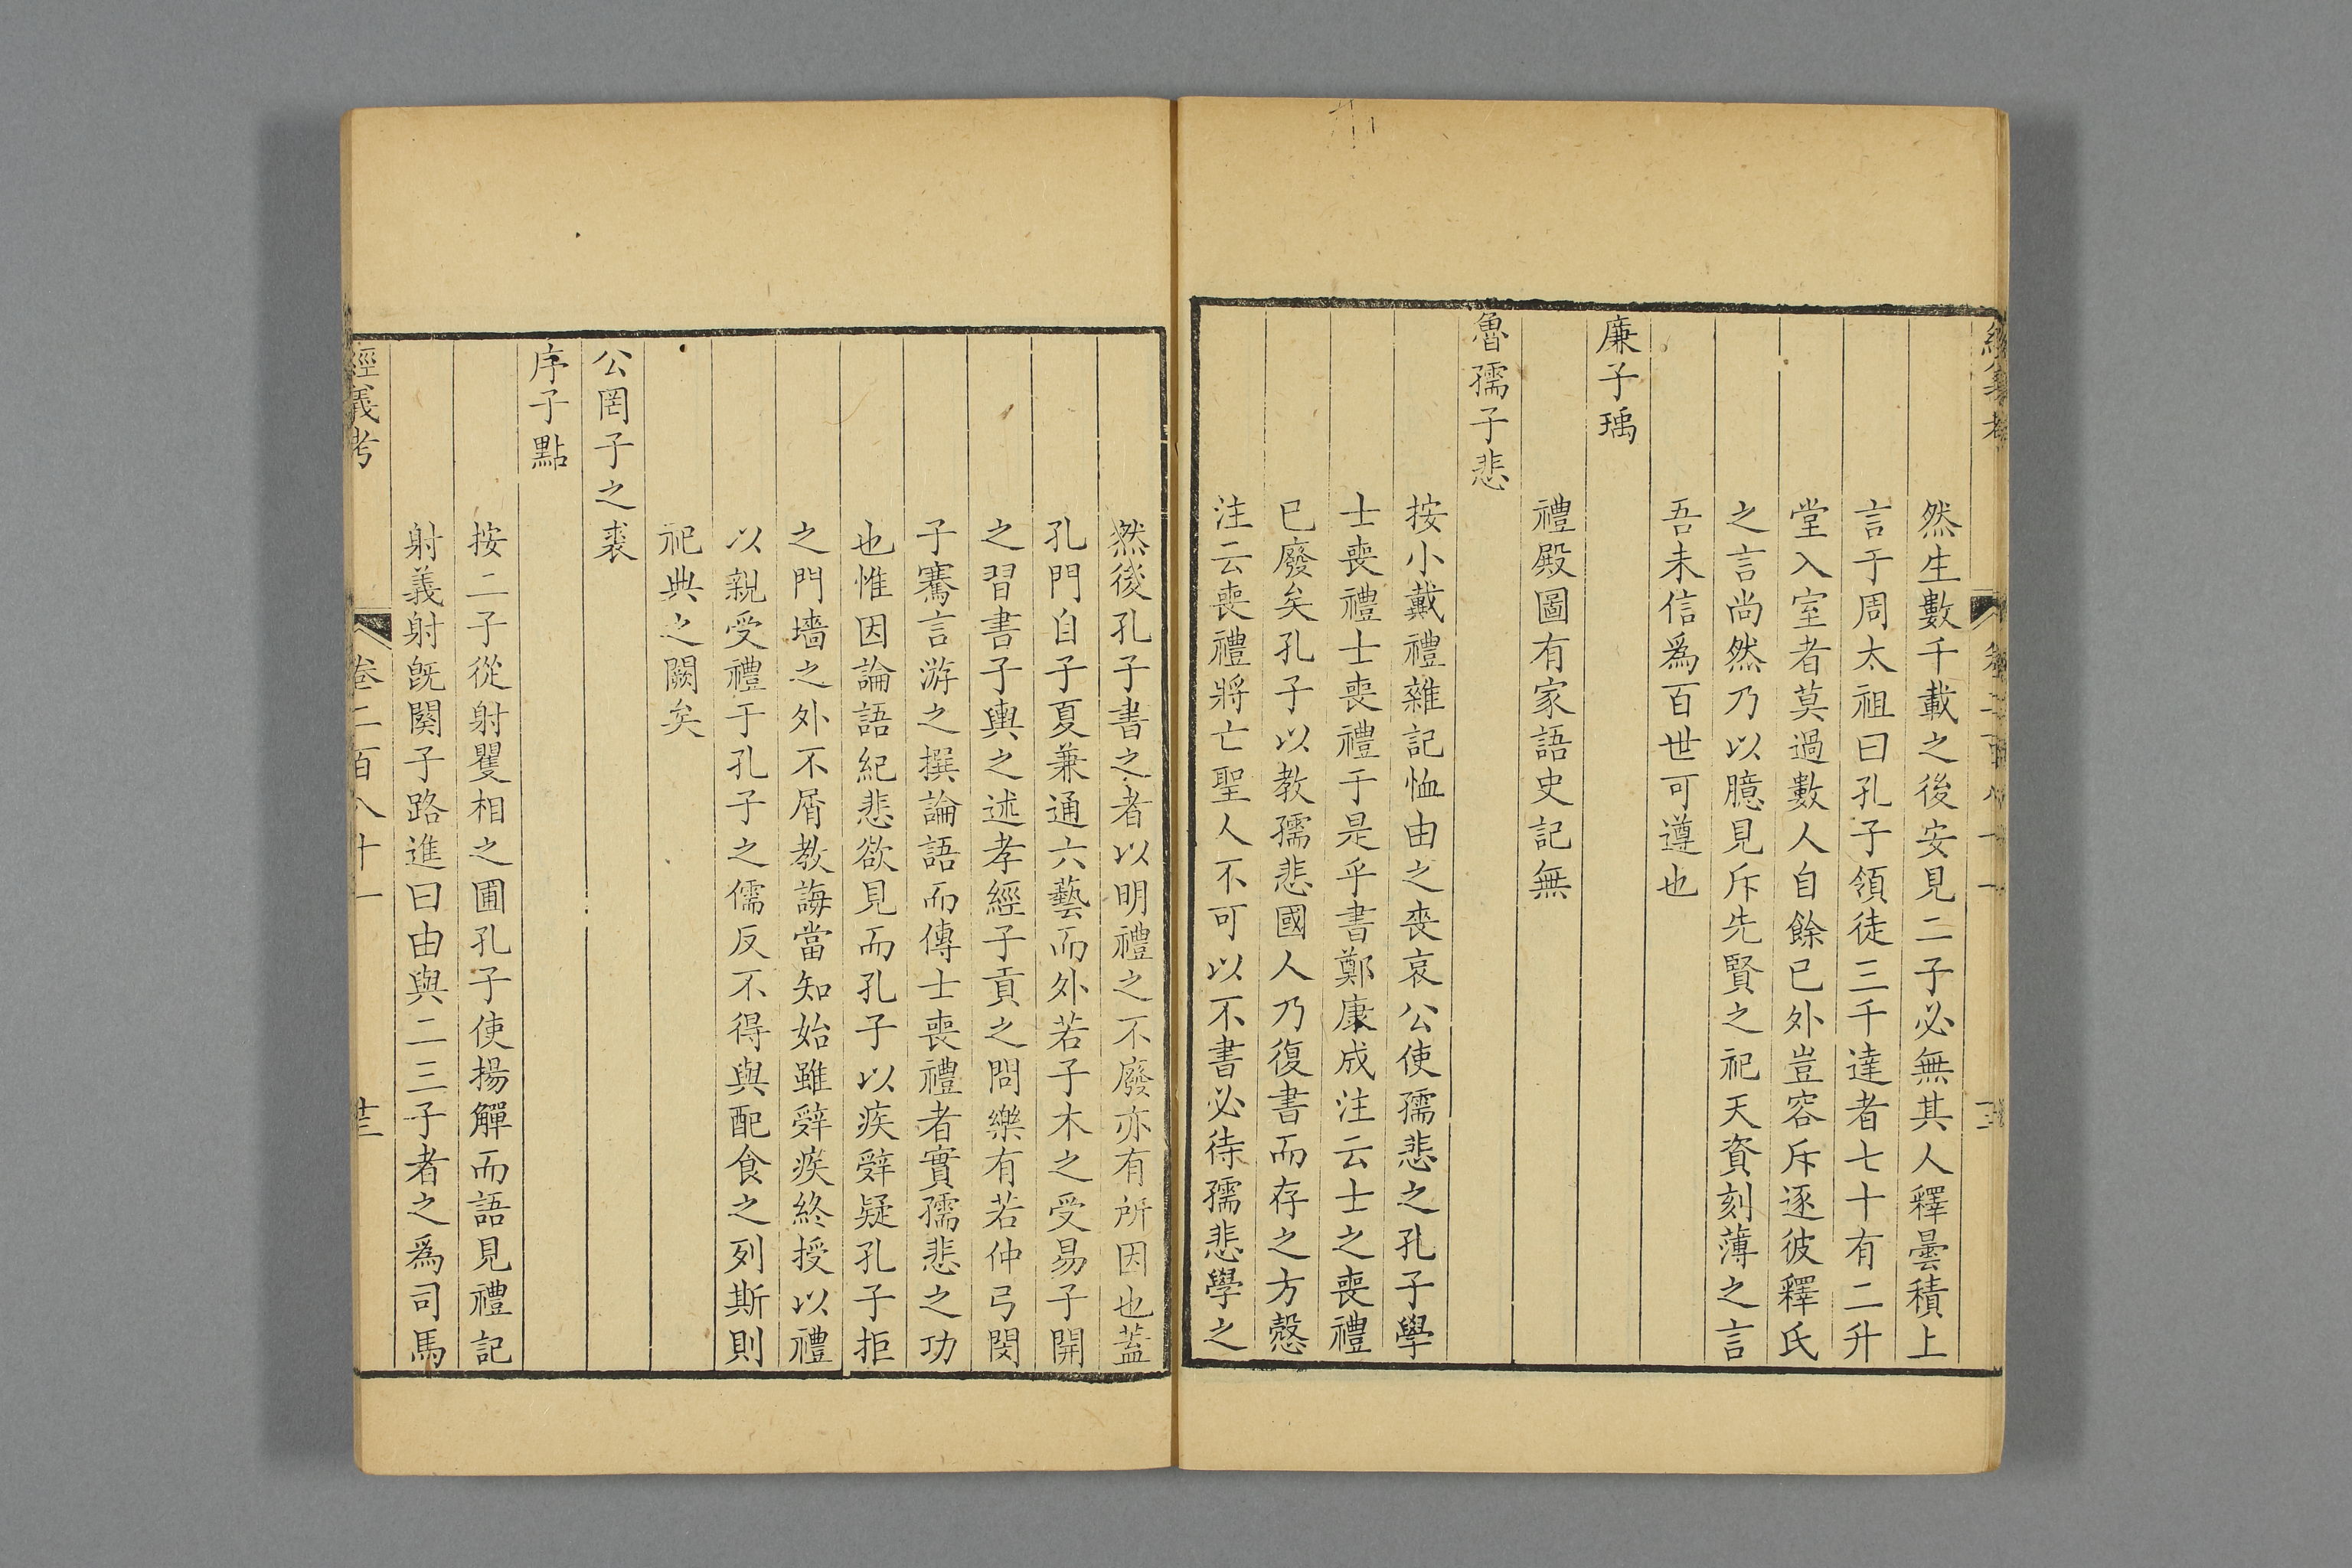 然生數千載之後安見二子必無其人釋曇積上
言于周太祖曰孔子領徒三千達者七十有二升
堂入室者莫過數人自餘已外豈容斥逐彼釋氏
之言尚然乃以臆見斥先賢之祀天資刻薄之言
吾未信爲百世可遵也
廉子瑀
禮殿圖有家語史記無
魯孺子悲
按小戴禮雜記恤由之喪哀公使孺悲之孔子學
士喪禮士喪禮于是乎書鄭康成注云士之喪禮
已廢矣孔子以教孺悲國人乃復書而存之方慤
注云喪禮將亡聖人不可以不書必待孺悲學之
然後孔子書之者以明禮之不廢亦有所因也蓋
孔門自子夏兼通六藝而外若子木之受易子開
之習書子輿之述孝經子貢之問樂有若仲弓閔
子騫言游之撰論語而傳士喪禮者實孺悲之功
也惟因論語紀悲欲見而孔子以疾辤疑孔子拒
之門墻之外不屑教誨當知始雖辤疾終授以禮
以親受禮于孔子之儒反不得與配食之列斯則
祀典之闕矣
公罔子之裘
序子點
按二子從射矍相之圃孔子使揚觶而語見禮記
射義射旣闋子路進曰由與二三子者之爲司馬
經義考
卷二百八十一